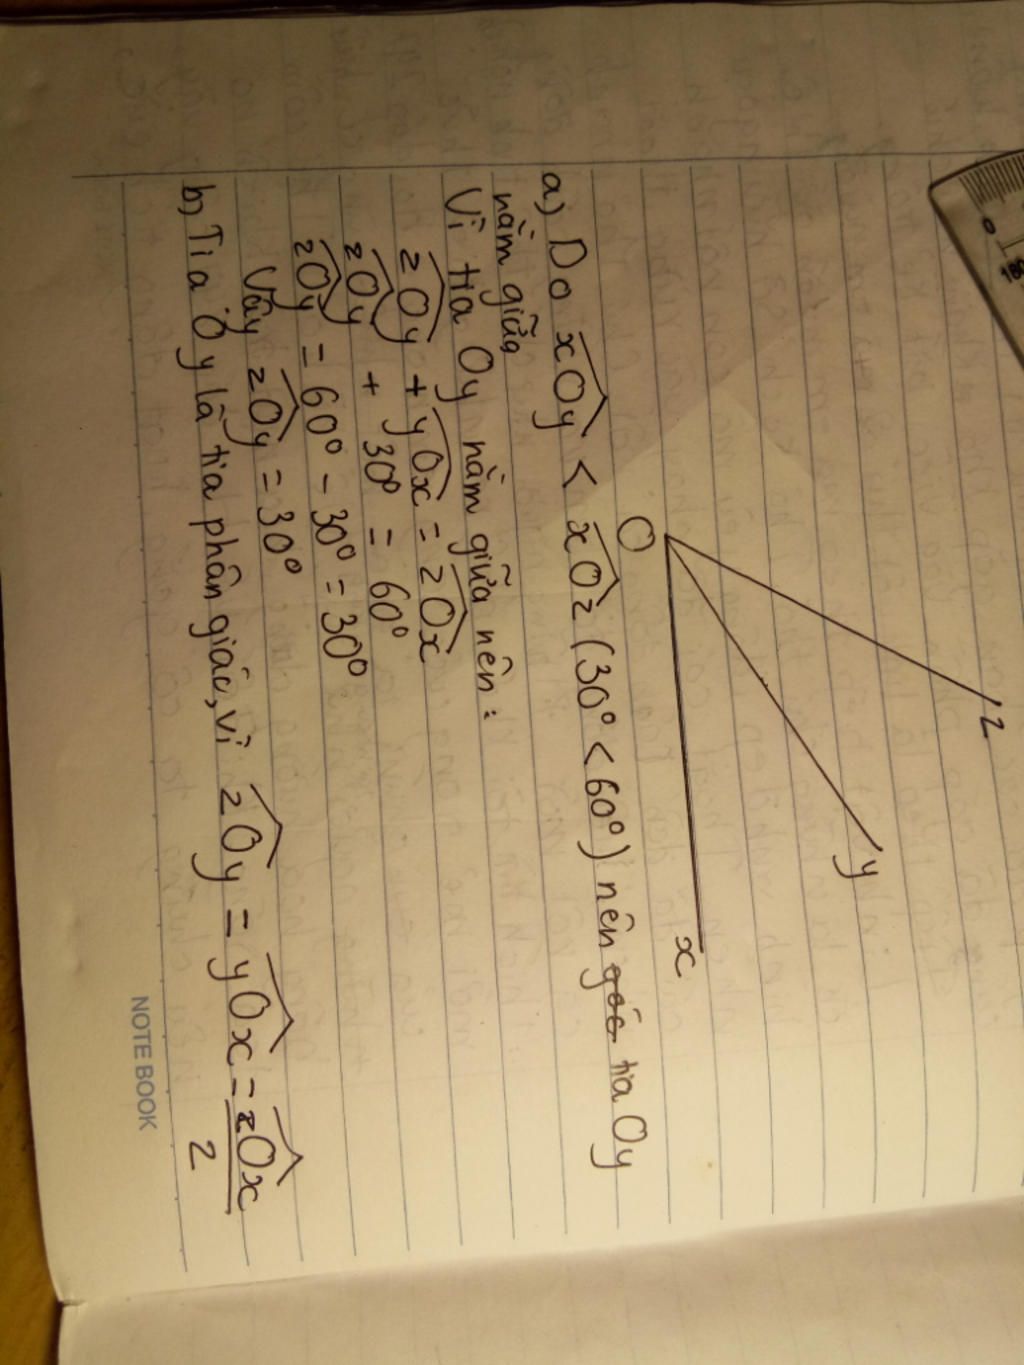 0
180
z
y
O
x
a) Do xOy < xOz (30° < 60°) nên góc tia Oy
nằm giữa
Vì tia Oy nằm giữa nên :
zOy + yOx = zOx
zOy + 30° = 60°
zOy = 60° - 30° = 30°
Vậy zOy = 30°
b) Tia Oy là tia phân giác, vì zOy = yOx = zOx
2
NOTE BOOK